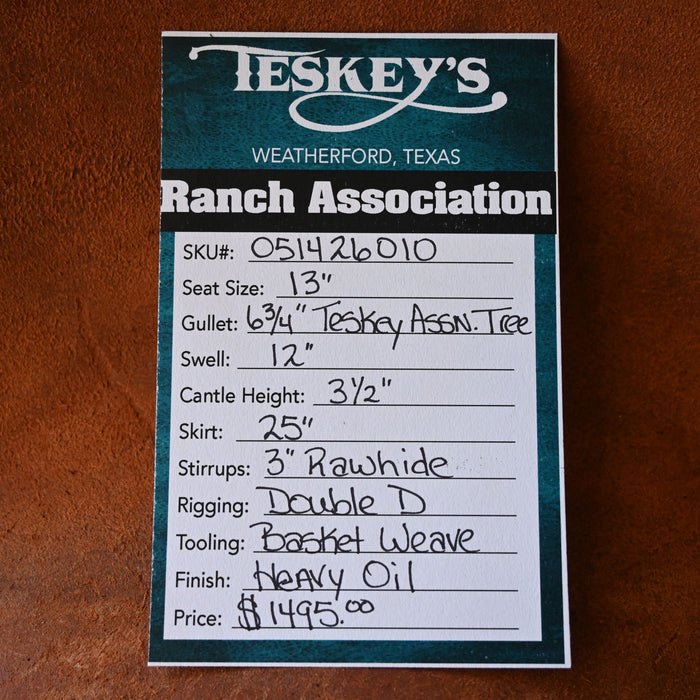 TESKEY'S
WEATHERFORD, TEXAS
Ranch Association
SKU#: 051426010
Seat Size: 13"
Gullet: 6 3/4" Teskey Assn. Tree
Swell: 12"
Cantle Height: 3 1/2"
Skirt: 25"
Stirrups: 3" Rawhide
Rigging: Double D
Tooling: Basket Weave
Finish: Heavy Oil
Price: $1495.00